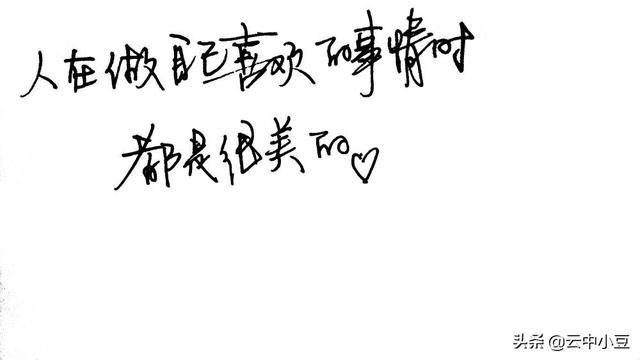 人在做自己喜欢的事情时
都是很美的♡
头条 @云中小豆